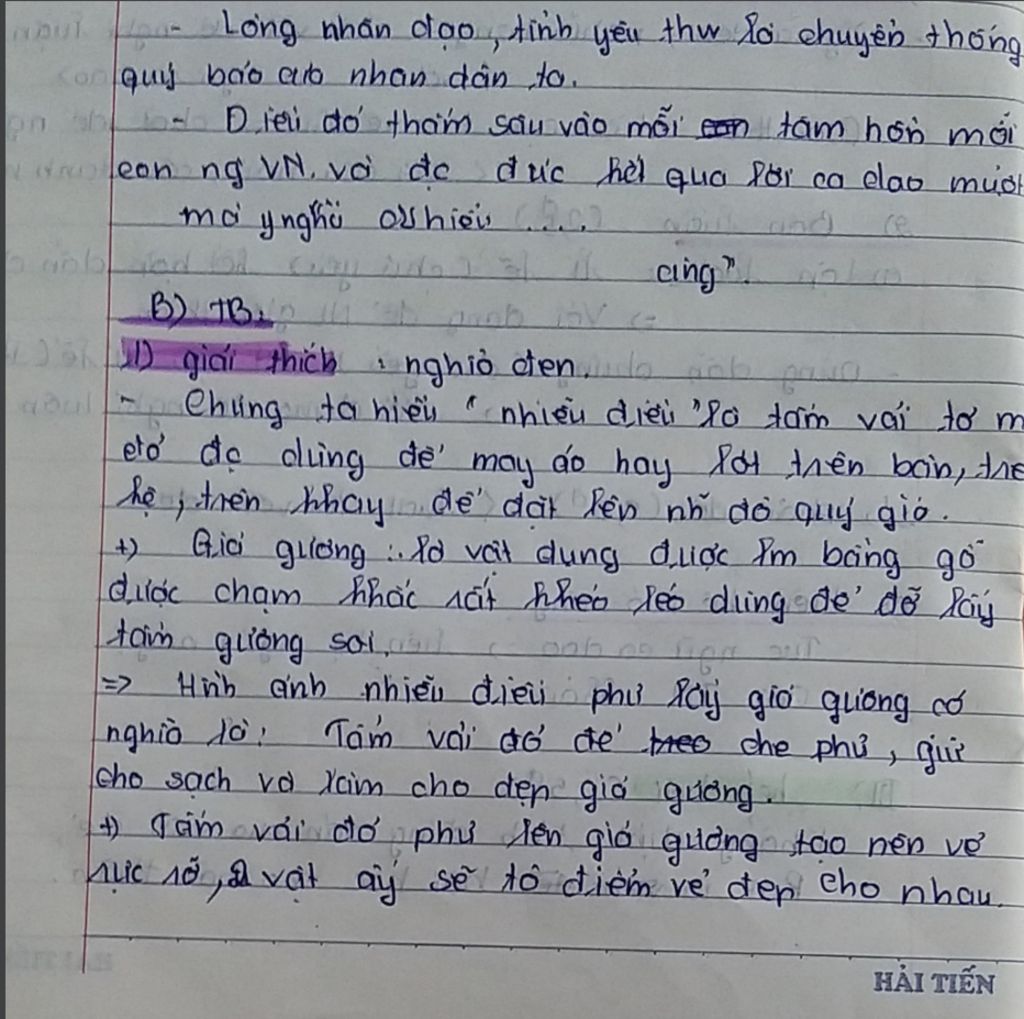 - Lòng nhân đạo, tình yêu thw là chuyền thống
quý báo của nhan dân ta.
- Điều đó thấm sâu vào mỗi tâm hồn mỗi
con ng VN. và đc đúc kết qua lời ca dao mượt
mà ý nghĩa
cùng".
B) TB:
1) giải thích : nghĩa đen.
- Chúng ta hiểu " nhiễu điều " là tấm vải tơ m
đỏ đc dùng để may áo hay lót trên bàn, trê
kệ, trên khay để đặt lên nh~ đồ quý giá.
+) Giá gương : là vật dụng được lm bằng gỗ
được chạm khắc rất khéo léo dùng để đỡ lấy
tấm gương soi.
=> Hình ảnh nhiễu điều phủ lấy giá gương có
nghĩa là: Tấm vải đó để che phủ, giữ
cho sạch và làm cho đẹp giá gương.
+) Tấm vải đỏ phủ lên giá gương tạo nên vẻ
rực rỡ, 2 vật ấy sẽ tô điểm vẻ đẹp cho nhau.
HẢI TIẾN